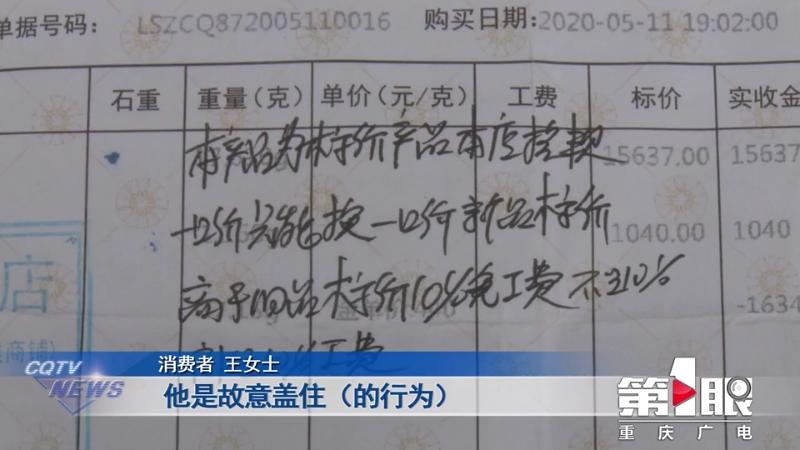 单据号码: LSZCQ872005110016 购买日期: 2020-05-11 19:02:00
石重 重量(克) 单价(元/克) 工费 标价 实收金
本产品为标价产品本店按契 15637.00 15637
一口价只能换一口价新品标价 1040.00 1040
店 高于旧品标价10%免工费不到10% -1634
工费
消费者 王女士
CQTV NEWS
他是故意盖住(的行为)
第1眼
重庆广电